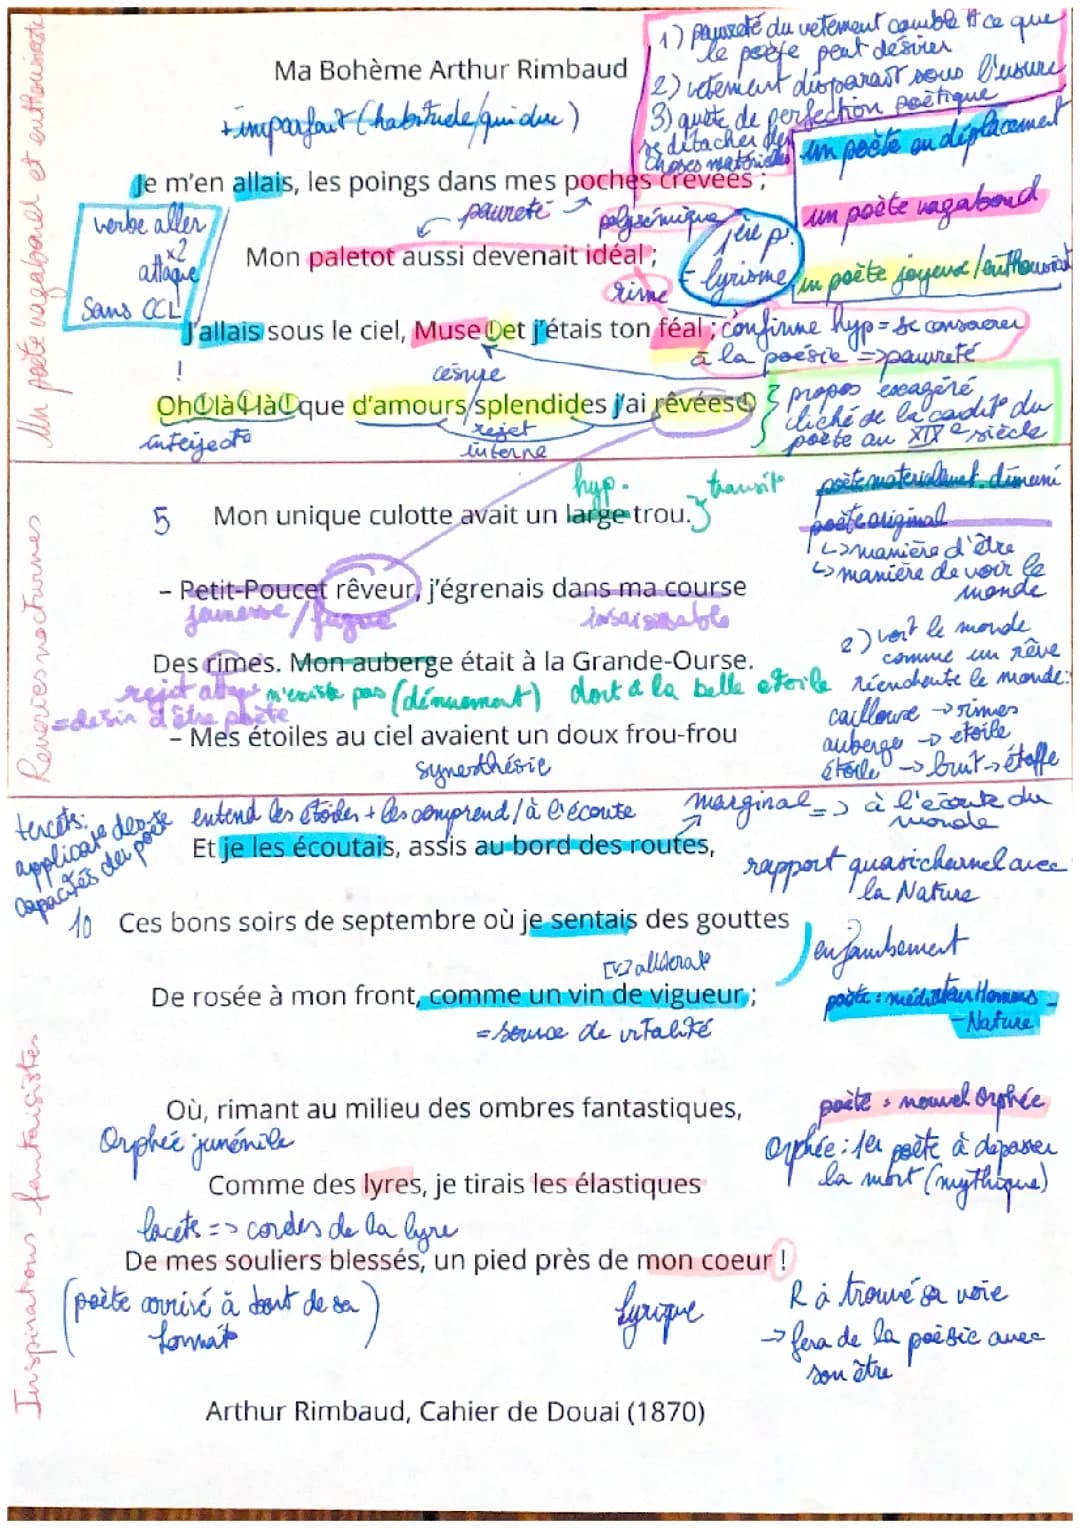 Un poète vagabond et enthousiaste
Ma Bohème Arthur Rimbaud
+ imparfait (habitude/qui dure)
1) pauvreté du vetement comble # ce que
le poète peut désirer
2) vetement disparaît sous l'usure
3) quête de perfection poétique
détacher des
choses matérielles
un poète en déplacement
un poète vagabond
un poète joyeux/enthousiaste
Je m'en allais, les poings dans mes poches crevées ;
verbe aller
x2
attaque
Sans CCL
pauvreté
polysémique
1ère p.
= lyrisme
Mon paletot aussi devenait idéal ;
rime
J'allais sous le ciel, Muse ! et j'étais ton féal ;
confirme hyp = se consacrer
à la poésie => pauvreté
!
césure
Oh ! là ! là ! que d'amours/splendides j'ai rêvées !
interject°
rejet
interne
propos exagéré
cliché de la condit° du
poète au XIXe siècle
Reveries nocturnes
hyp.
transit°
5 Mon unique culotte avait un large trou.
poète materiellement démuni
poète original
↳ manière d'être
↳ manière de voir le
monde
– Petit-Poucet rêveur, j'égrenais dans ma course
jeunesse/fugue
insaisissable
2) voit le monde
comme un rêve
réenchante le monde:
cailloux → rimes
auberge → etoile
étoile → bruit → étoffe
Des rimes. Mon auberge était à la Grande-Ourse.
rejet
= desir d'être poète
n'existe pas (dénuement) dort à la belle etoile
– Mes étoiles au ciel avaient un doux frou-frou
synesthésie
tercets:
applicat° des
capacités du poète
entend les étoiles + les comprend/à l'écoute
marginal => à l'écoute du
monde
Et je les écoutais, assis au bord des routes,
rapport quasi charnel avec
la Nature
10 Ces bons soirs de septembre où je sentais des gouttes
enjambement
[v] allitérat°
De rosée à mon front, comme un vin de vigueur ;
= source de vitalité
poète : médiateur Hommes -
- Nature
Inspirations fantaisistes
Où, rimant au milieu des ombres fantastiques,
Orphée junénile
poète = nouvel Orphée
Orphée : 1er poète à dépasser
la mort (mythique)
Comme des lyres, je tirais les élastiques
lacets => cordes de la lyre
De mes souliers blessés, un pied près de mon coeur !
(poète arrivé à bout de sa
format°)
Lyrique
R à trouvé sa voie
→ fera de la poésie avec
son être
Arthur Rimbaud, Cahier de Douai (1870)